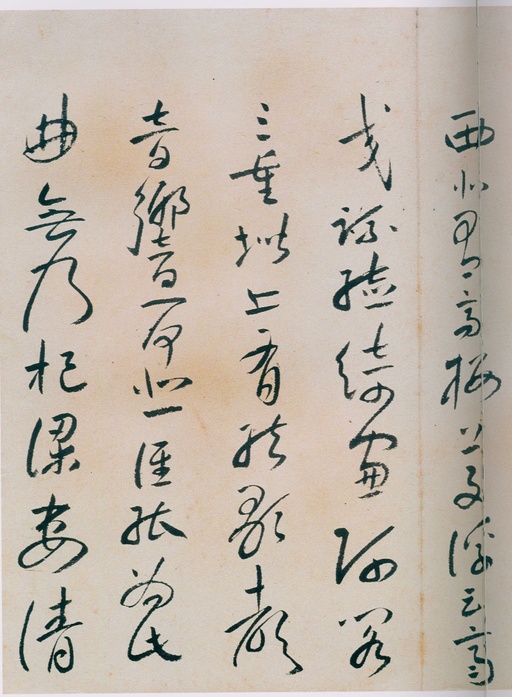 西北有高樓上與浮云齊
交疏結綺窗阿閣
三重堦上有絃歌聲
音響一何悲誰能為此
曲無乃杞梁妻清